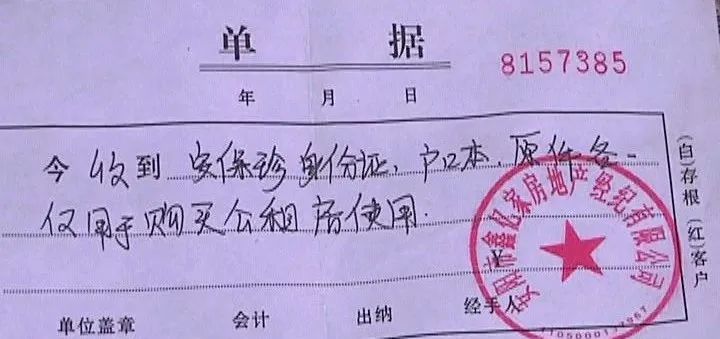 单 据
8157385
年 月 日
今收到 安保珍身份证、户口本、原件各一
仅用于购买公租房使用.
¥
单位盖章 会计 出纳 经手人
(白)存根 (红)客户
市鑫亿家房地产经纪有限公司